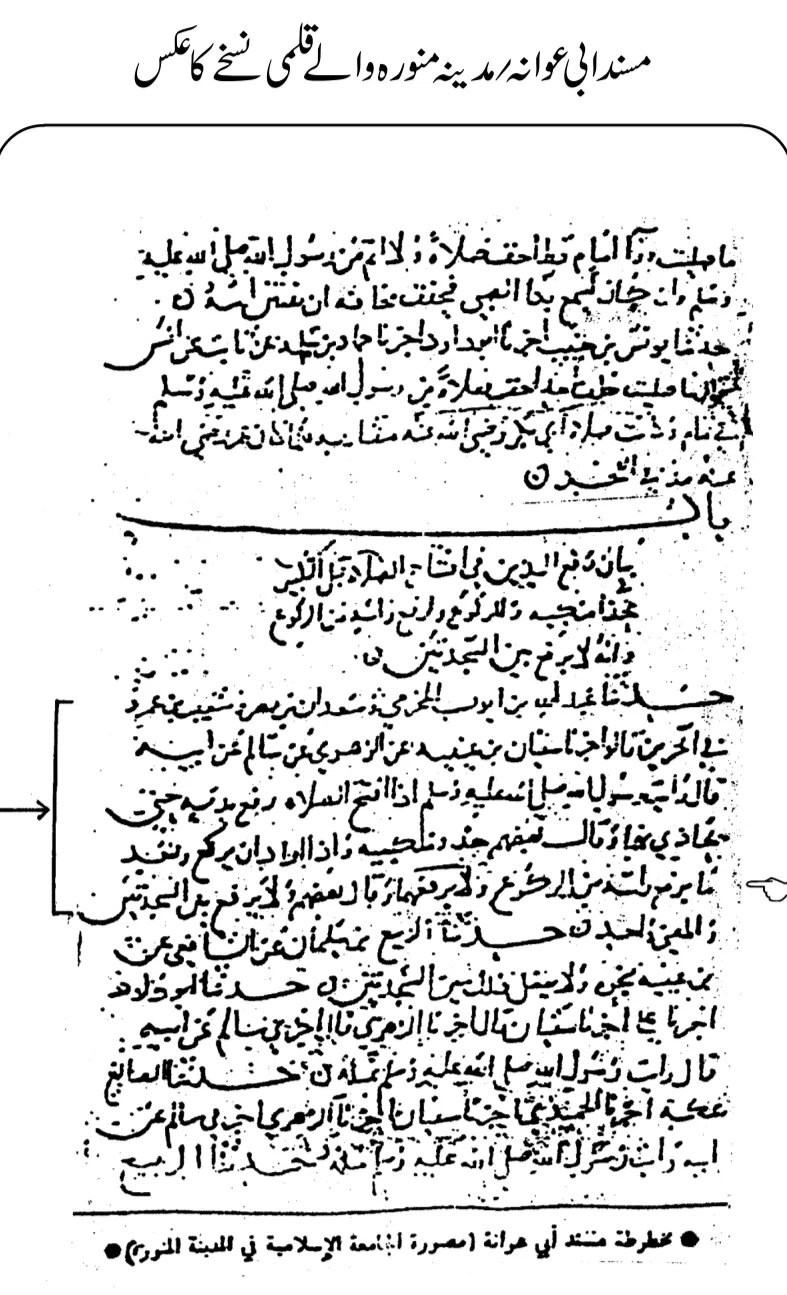 مسند ابی عوانہ / مدینہ منورہ والے قلمی نسخے کا عکس
ما صليت ورآ امام قط اخف صلاة ولا اتم من رسول الله صلى الله عليه
وسلم وان كان ليسمع بكا الصبي فيخفف مخافة ان تفتتن امه ن
حدثنا يونس بن حبيب اخبرنا ابو داود اخبرنا حماد بن سلمة عن ثابت عن انس
قال ما صليت خلف احد اخف صلاة من رسول الله صلى الله عليه وسلم
في تمام وكانت صلاة ابي بكر رضي الله عنه متقاربة فلما كان عمر رضي الله
عنه مد في الفجر ن
باب
بيان رفع اليدين في افتتاح الصلاة قبل التكبير
بحذا منكبيه وللركوع ولرفع راسه من الركوع
وانه لا يرفع بين السجدتين ن
حدثنا عبد الله بن ايوب المخرمي وسعدان بن نصر وشعيب بن عمرو
في اخرين قالوا حدثنا سفيان بن عيينه عن الزهري عن سالم عن ابيه
قال رايت رسول الله صلى الله عليه وسلم اذا افتتح الصلاه رفع يديه حتى
يحاذي بهما وقال بعضهم حذو منكبيه واذا اراد ان يركع وبعد
ما يرفع راسه من الركوع ولا يرفعهما وقال بعضهم ولا يرفع بين السجدتين
والمعنى واحد ن حدثنا الربيع بن سليمان عن الشافعي عن
بن عيينه بنحوه ولا يفعل ذلك بين السجدتين ن حدثنا ابو داود
اخبرنا علي اخبرنا سفيان قال اخبرنا الزهري قال اخبرني سالم عن ابيه
قال رايت رسول الله صلى الله عليه وسلم بمثله ن حدثنا الصائغ
بمكة اخبرنا الحميدي اخبرنا سفيان اخبرنا الزهري اخبرني سالم عن
ابيه رايت رسول الله صلى الله عليه وسلم مثله حدثنا الربيع
● مخطوطة مسند أبي عوانة (مصورة الجامعة الإسلامية في المدينة المنورة) ●